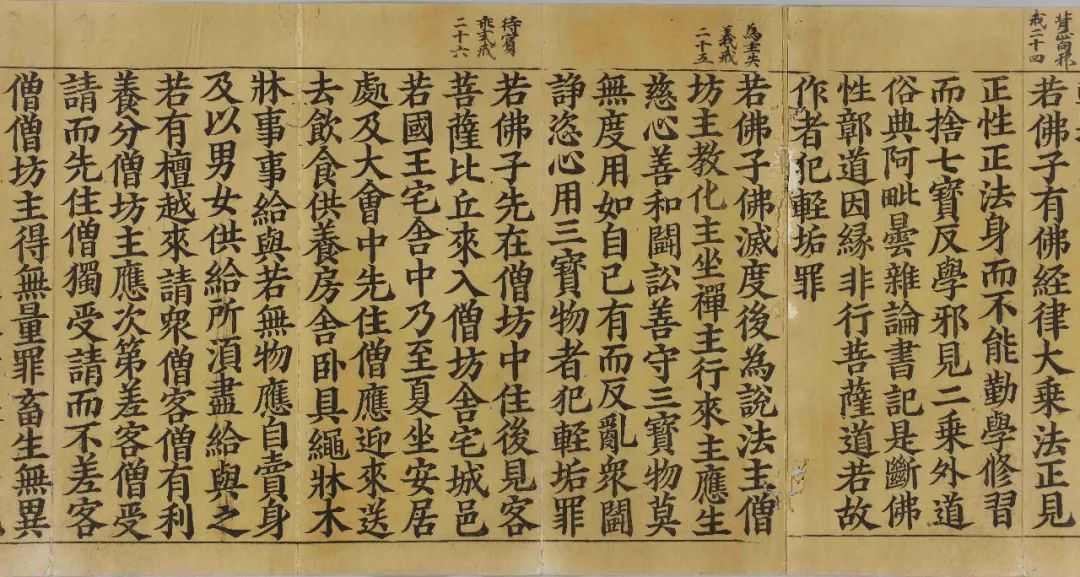 背正向邪
戒二十四
若佛子有佛経律大乗法正見
正性正法身而不能勤學修習
而捨七寶反學邪見二乗外道
俗典阿毗曇雜論書記是斷佛
性鄣道因縁非行菩薩道若故
作者犯輕垢罪
為主失
義戒
二十五
若佛子佛滅度後為説法主僧
坊主教化主坐禪主行來主應生
慈心善和鬪訟善守三寶物莫
無度用如自己有而反亂衆鬪
諍恣心用三寶物者犯輕垢罪
待賓
乖式戒
二十六
若佛子先在僧坊中住後見客
菩薩比丘來入僧坊舍宅城邑
若國王宅舍中乃至夏坐安居
處及大會中先住僧應迎來送
去飲食供養房舍臥具繩牀木
牀事事給與若無物應自賣身
及以男女供給所湏盡給與之
若有檀越來請衆僧客僧有利
養分僧坊主應次第差客僧受
請而先住僧獨受請而不差客
僧僧坊主得無量罪畜生無異